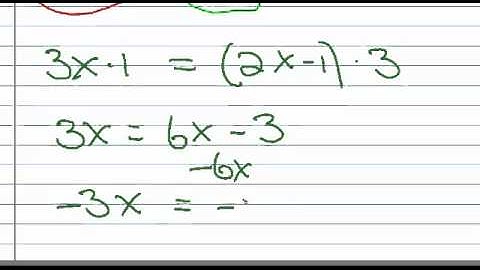 3x·1 = (2x-1)·3
3x = 6x - 3
-6x
-3x = -